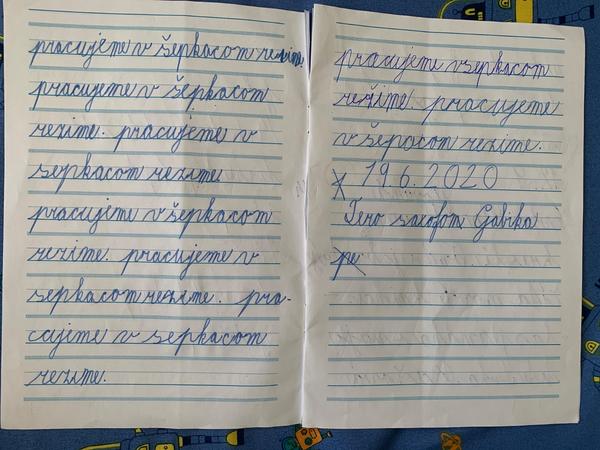 pracujeme v šepkacom režime.
pracujeme v šepkacom
režime. pracujeme v
sepkacom rezime
pracujjme v šepkacom
rezime. pracujeme v
sepkacom rezime. pra-
cujime v sepkacom
rezime.
pracujeme všepkacom
režime. pracujeme
v šepacom rezime.
x 19.6.2020
Tero saxofon Gabika
pe